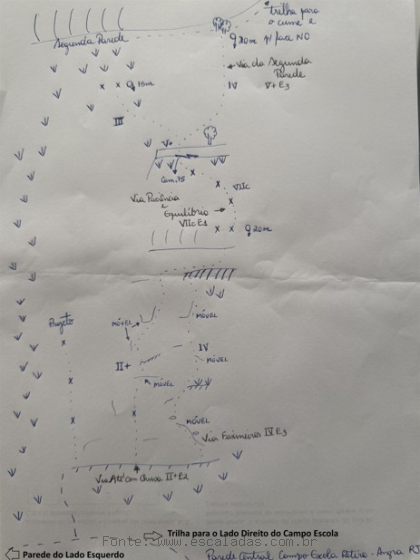 trilha para
o cume e
20m p/ face NO
Segunda Parede
Via da Segunda
Parede
IV V+E3
15m
III
V+
Cam. 75
VIIc
Via Paciência
e
Equilíbrio
VIIc E1
20m
Projeto
MÓVEL
MÓVEL
IV
MÓVEL
II+
MÓVEL
MÓVEL
Via Faxineira IV E3
Via Até com Chuva II+ E2
Fonte: www.escaladas.com.br
Trilha para o Lado Direito do Campo Escola
Parede do Lado Esquerdo
Parede Central Campo Escola Retiro - Angra RJ